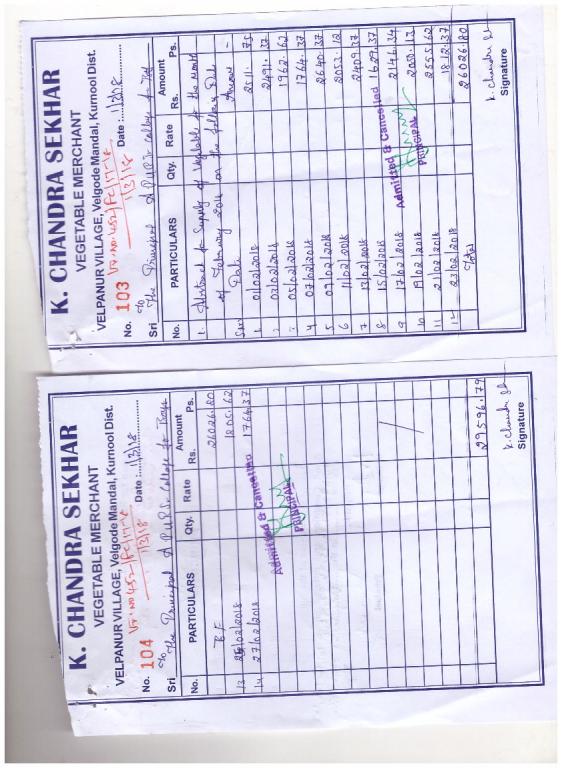 K. CHANDRA SEKHAR
VEGETABLE MERCHANT
VELPANUR VILLAGE, Velgode Mandal, Kurnool Dist.
No. 103 Date : 1/3/18
1/3/18
Sri The Principal APURJr College for Boys
No. PARTICULARS Qty. Rate Amount
Rs. Ps.
1. Abstract for Supply of Vegetables for the month
of February 2018 on the following Dates
Date Amount
1 01/02/2018 2511.75
03/02/2018 2491.37
1962.62
4 07/02/2018 1764.37
5 09/02/2018 2640.37
6 11/02/2018 2053.12
7 13/02/2018 2409.37
8 15/02/2018 1629.37
9 17/02/2018
10 19/02/2018
11 21/02/2018 2555.62
12 23/02/2018 1812.37
Total 26026.80
Admitted & Cancelled
PRINCIPAL
K. Chandra
Signature
K. CHANDRA SEKHAR
VEGETABLE MERCHANT
VELPANUR VILLAGE, Velgode Mandal, Kurnool Dist.
No. 104 Date : 1/3/18
1/3/18
Sri The Principal APURJr College for Boys
No. PARTICULARS Qty. Rate Amount
Rs. Ps.
B.F 26026.80
13 /02/2018 1805.62
14 27/02/2018 1764.37
Admitted & Cancelled
PRINCIPAL
29596.79
K. Chandra
Signature